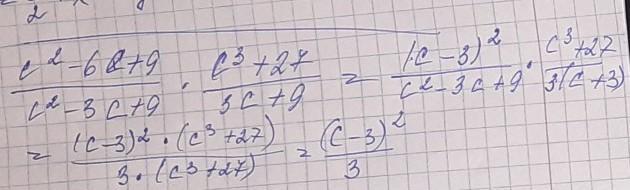 2
(c² - 6c + 9)/(c² - 3c + 9) · (c³ + 27)/(3c + 9) = (c - 3)²/(c² - 3c + 9) · (c³ + 27)/(3(c + 3))
= ((c - 3)² · (c³ + 27))/(3 · (c³ + 27)) = (c - 3)²/3